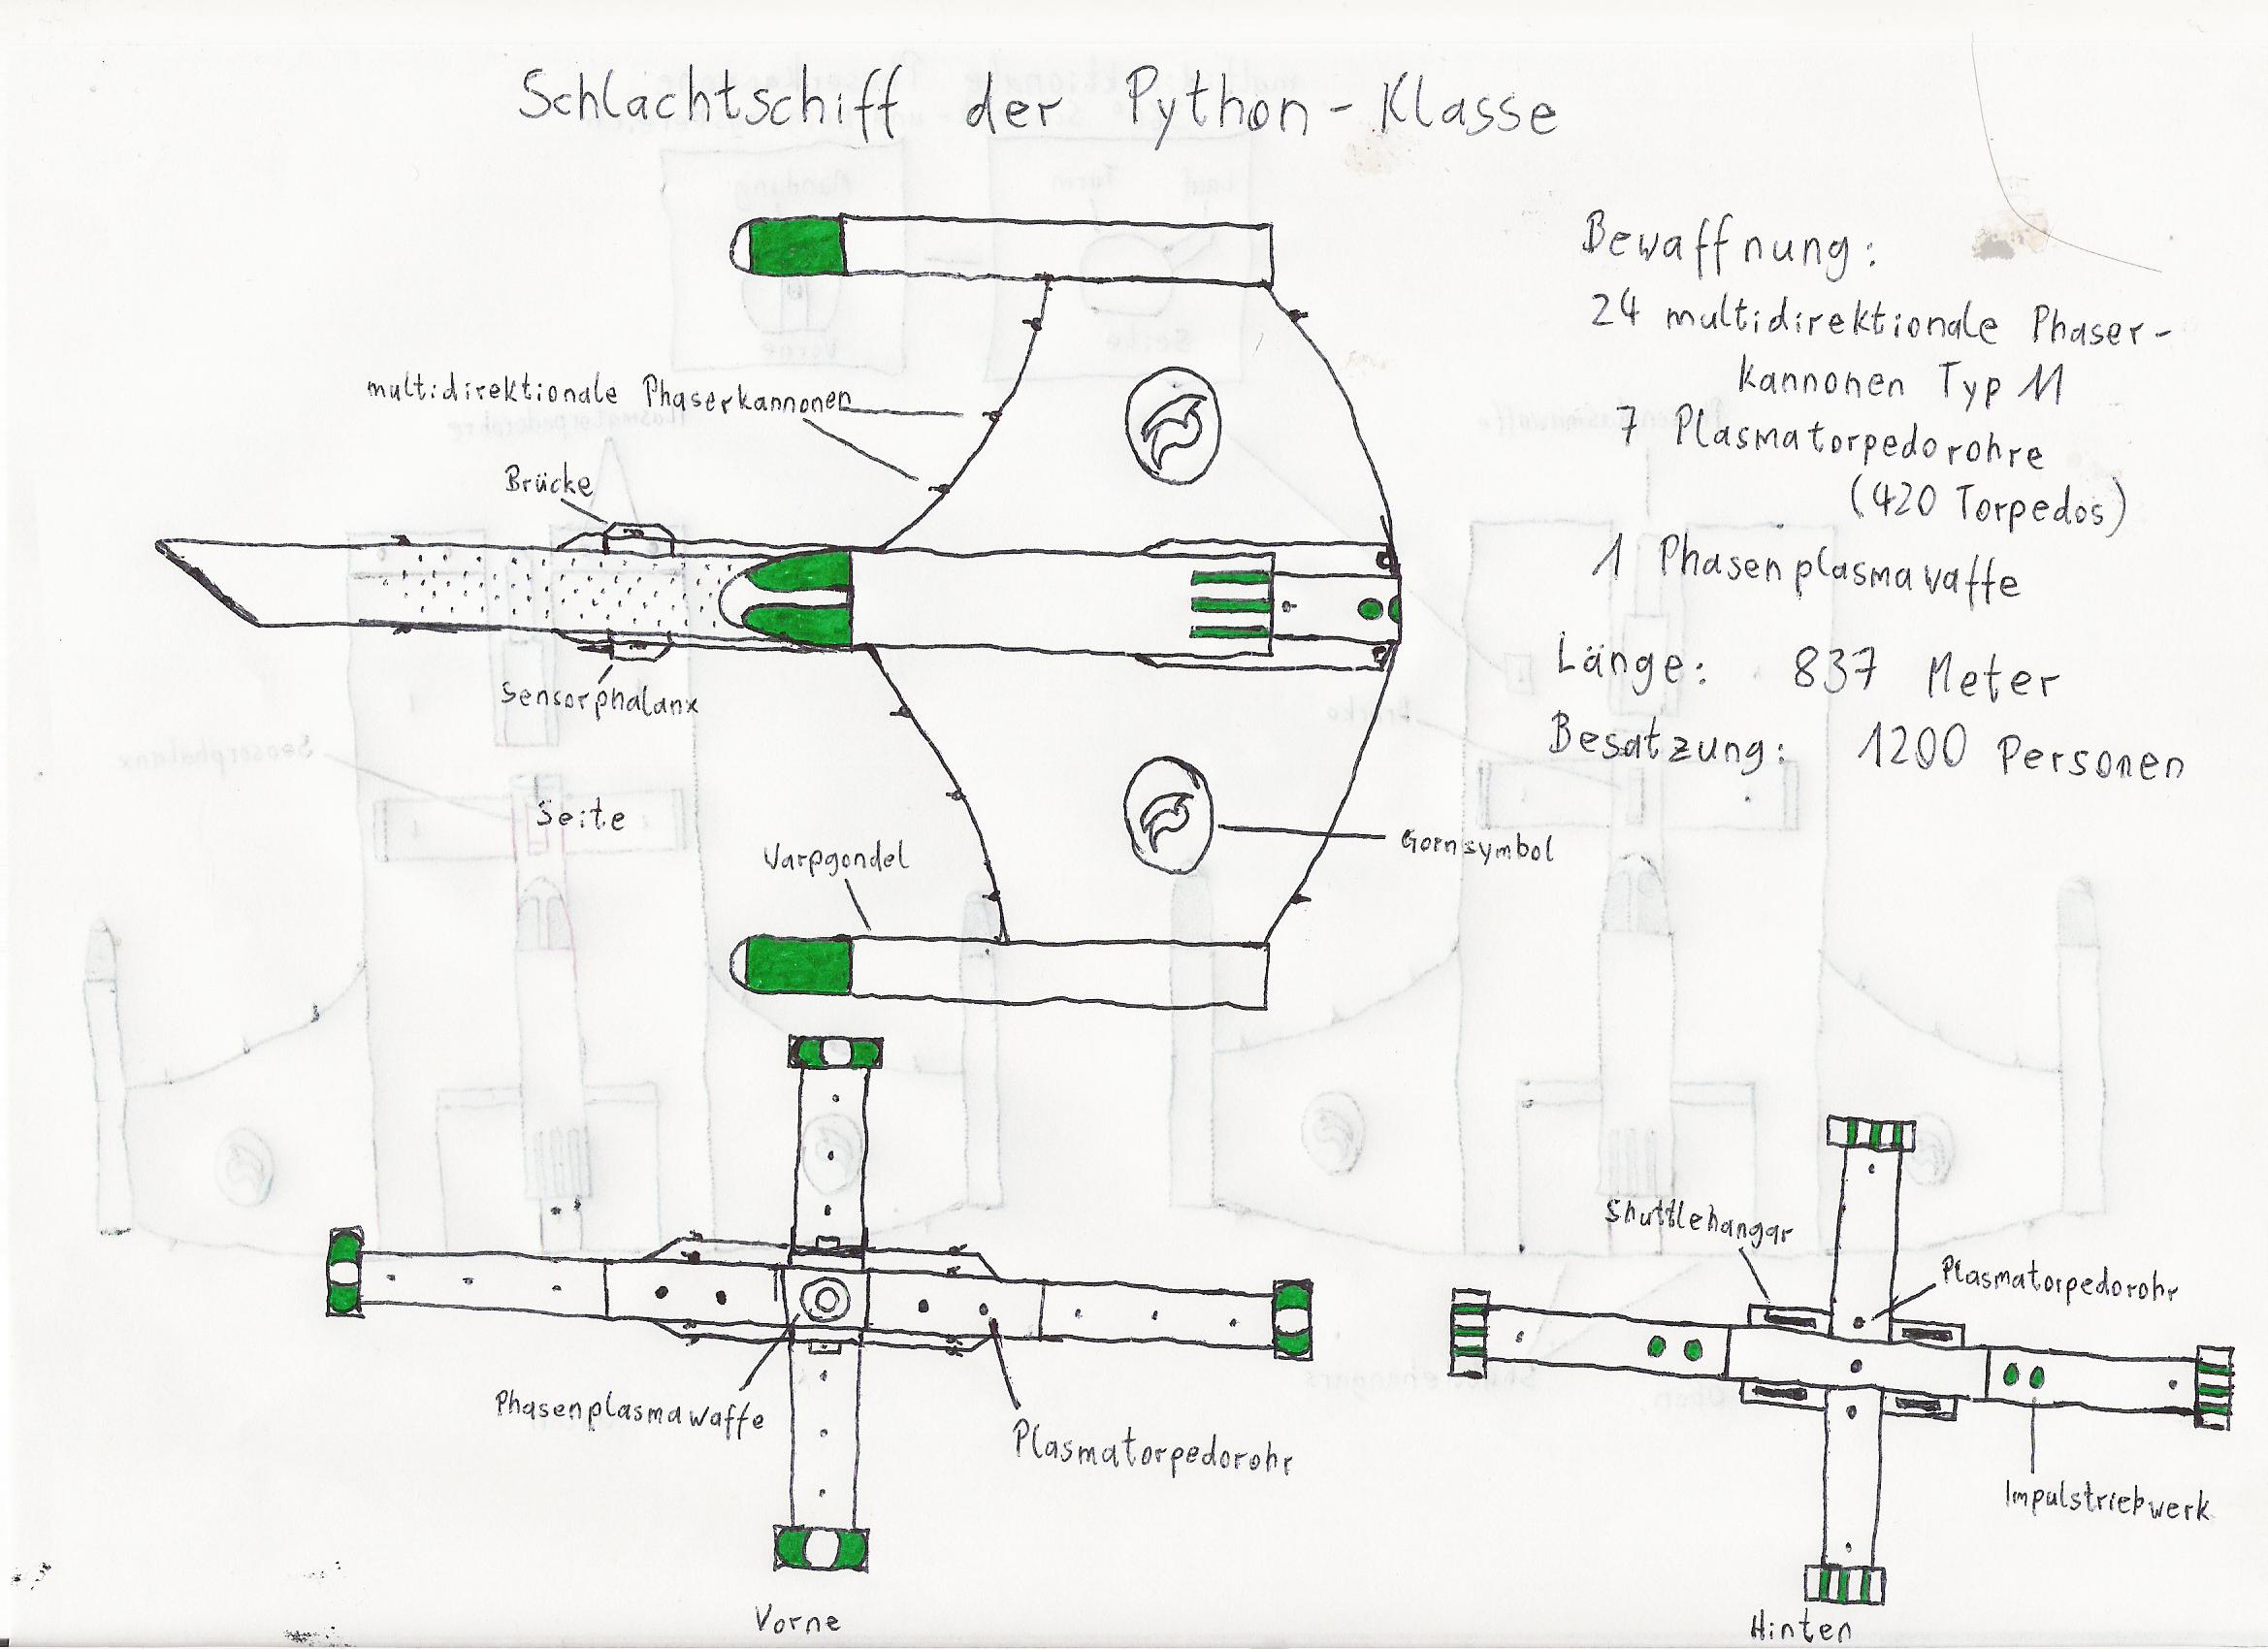 Schlachtschiff der Python-Klasse
Bewaffnung:
24 multidirektionale Phaser-
kannonen Typ 11
7 Plasmatorpedorohre
(420 Torpedos)
1 Phasenplasmawaffe
Länge: 837 Meter
Besatzung: 1200 Personen
multidirektionale Phaserkannonen
Brücke
Sensorphalanx
Seite
Warpgondel
Gornsymbol
Phasenplasmawaffe
Plasmatorpedorohr
Vorne
Shuttlehangar
Plasmatorpedorohr
Impulstriebwerk
Hinten